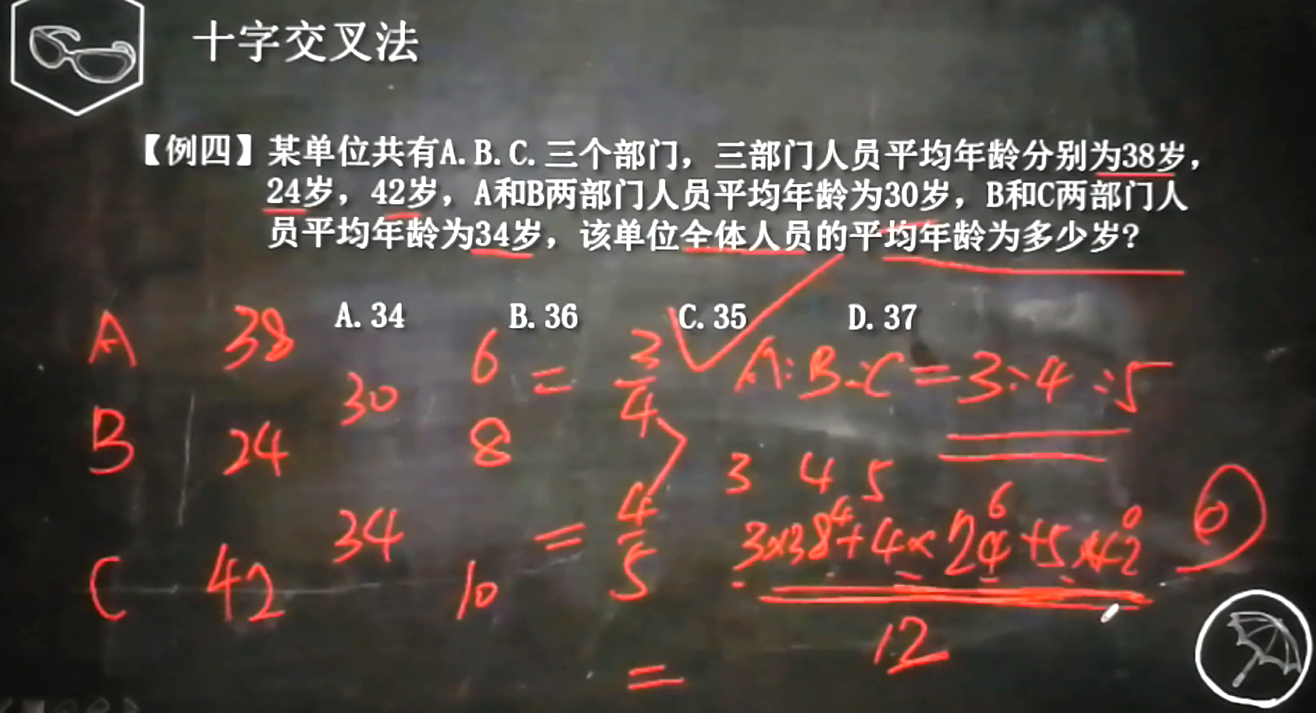 十字交叉法
【例四】某单位共有A.B.C.三个部门，三部门人员平均年龄分别为38岁，
24岁，42岁，A和B两部门人员平均年龄为30岁，B和C两部门人
员平均年龄为34岁，该单位全体人员的平均年龄为多少岁?
A.34 B.36 C.35 D.37
A 38 6 = 3/4 A:B:C=3:4:5
30
B 24 8
3 4 5
34 = 4/5 3×38+4×24+5×42
4 6 0 0
C 42 10
12
=